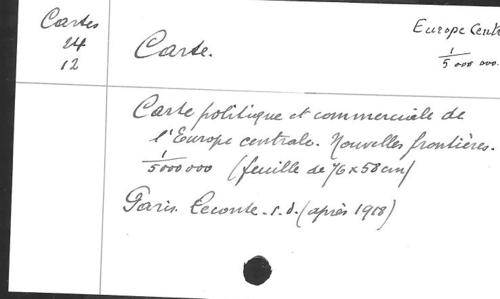 Cartes
24
12
Europe Cent
1/5 000 000.
Carte.
Carte politique et commerciale de
l'Europe centrale. Nouvelles frontières.
1/5000000 (feuille de 76x58cm)
Paris. Leconte. s.d. (après 1918)